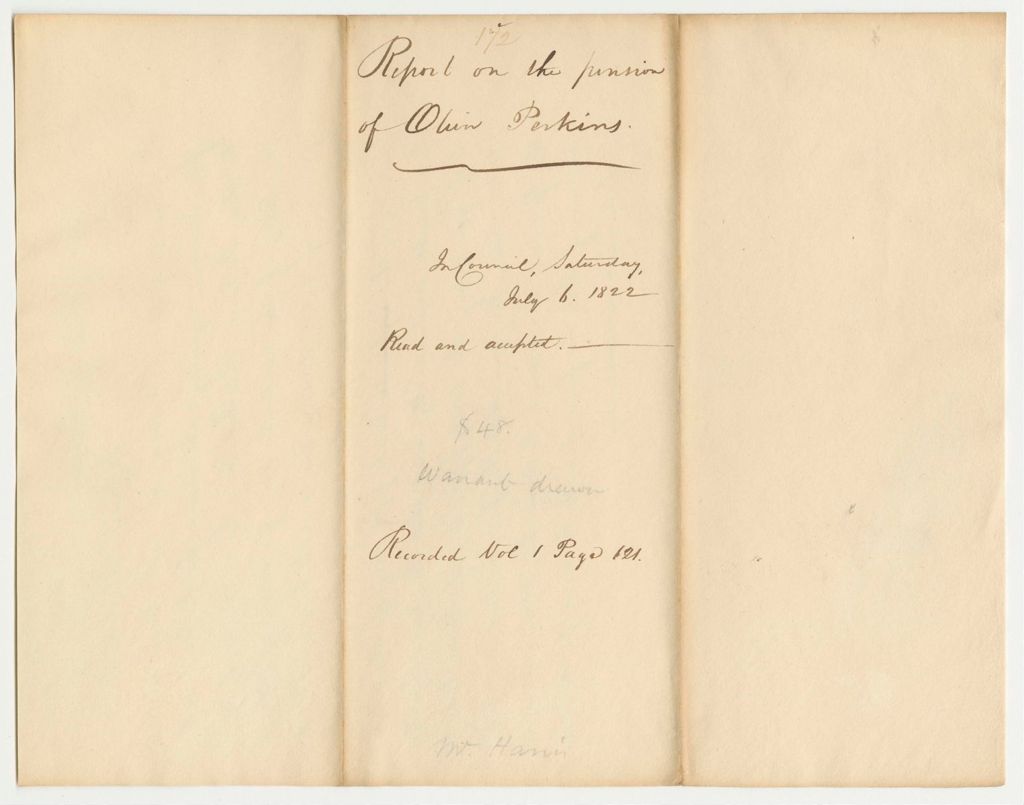 172
Report on the pension
of Olive Perkins.
In Council, Saturday,
July 6. 1822
Read and accepted.
$48.
Warrant drawn
Recorded Vol 1 Page 621.
Mr. Harris